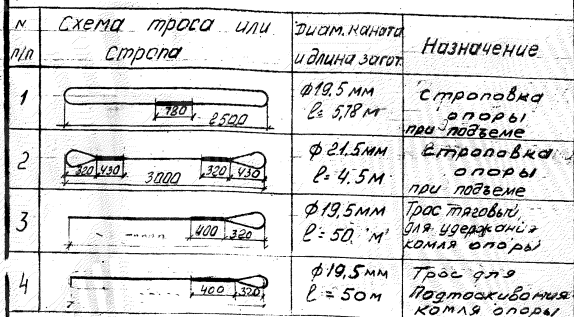 N п/п
Схема троса или стропа
Диам. каната и длина загот.
Назначение
1
780
2500
ϕ19.5 мм
ℓ= 5,78 м
Строповка
опоры
при подъеме
2
320 430
3000
320 430
ϕ 21.5мм
ℓ= 4.5м
Строповка
опоры
при подъеме
3
400
320
ϕ19,5мм
ℓ= 50 м
Трос тяговый,
для удержания
комля опоры
4
400
320
ϕ19.5мм
ℓ = 50м
Трос для
Подтаскивания
комля опоры